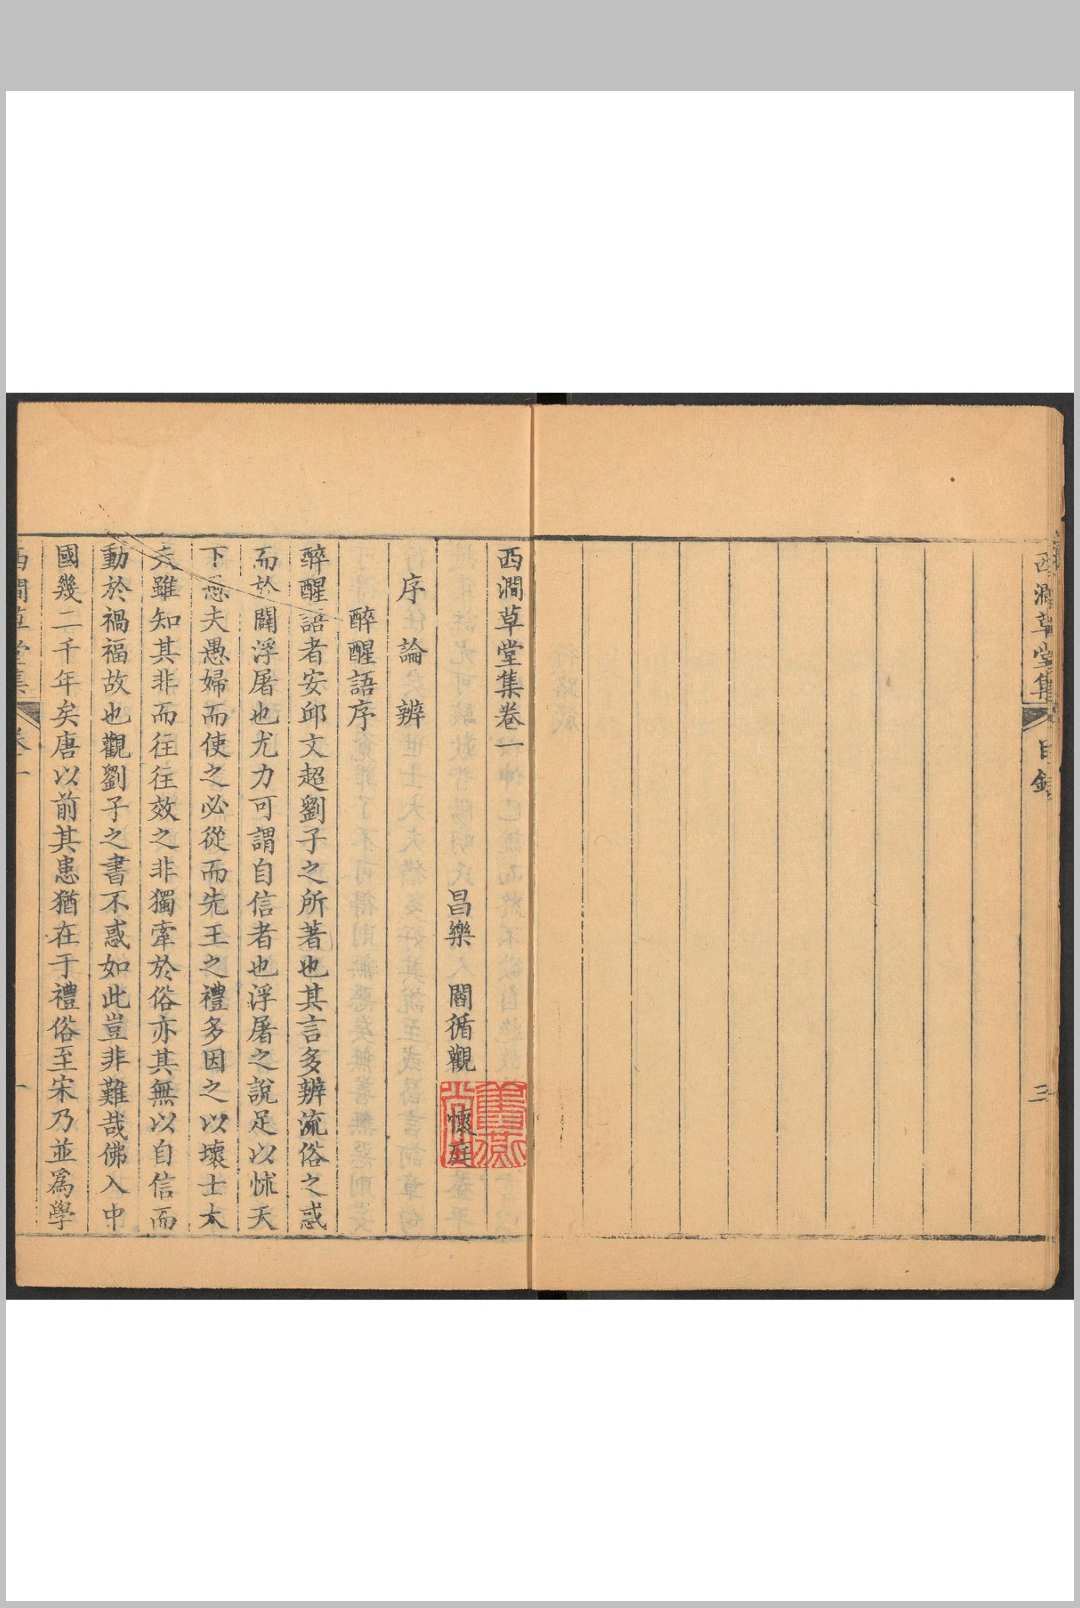 西澗草堂集
目錄
三
西澗草堂集卷一
昌樂 閻循觀 懷庭
序 論 辨
醉醒語序
醉醒語者安邱文超劉子之所著也其言多辨流俗之惑
而於闢浮屠也尤力可謂自信者也浮屠之說足以怵天
下愚夫愚婦而使之必從而先王之禮多因之以壞士大
夫雖知其非而往往效之非獨牽於俗亦其無以自信而
動於禍福故也觀劉子之書不惑如此豈非難哉佛入中
國幾二千年矣唐以前其患猶在于禮俗至宋乃並爲學
西澗草堂集
卷一
一